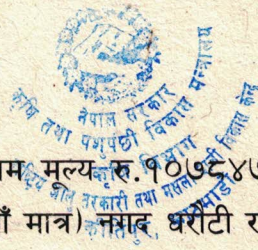 नेपाल सरकार
कृषि तथा पशुपंछी विकास मन्त्रालय
कृषि विभाग
तरकारी तथा मसला
विकास केन्द्र
कीर्तिपुर,
म मूल्य रु.१०७८४७
ाँ मात्र) नगद धरौटी र